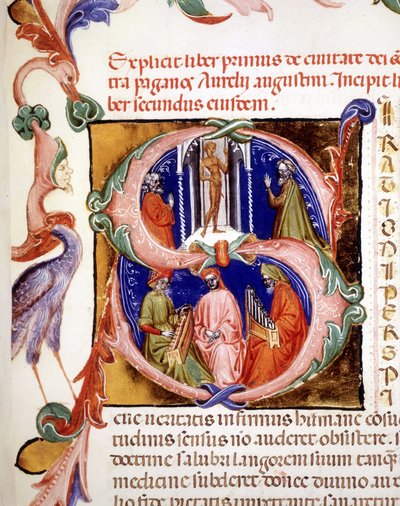 Explicit liber primus de ciuitate dei
tra paganos Aurelii augustini. Incipit li
ber secundus eiusdem.
SI RATIONI PERSPI
cue ueritatis infirmus humane cosu
tudinis sensus no auderet obsistere. s
doctrine salubri langorem suum tanq
medicine subderet donec diuino au
fide pietatis impetrante